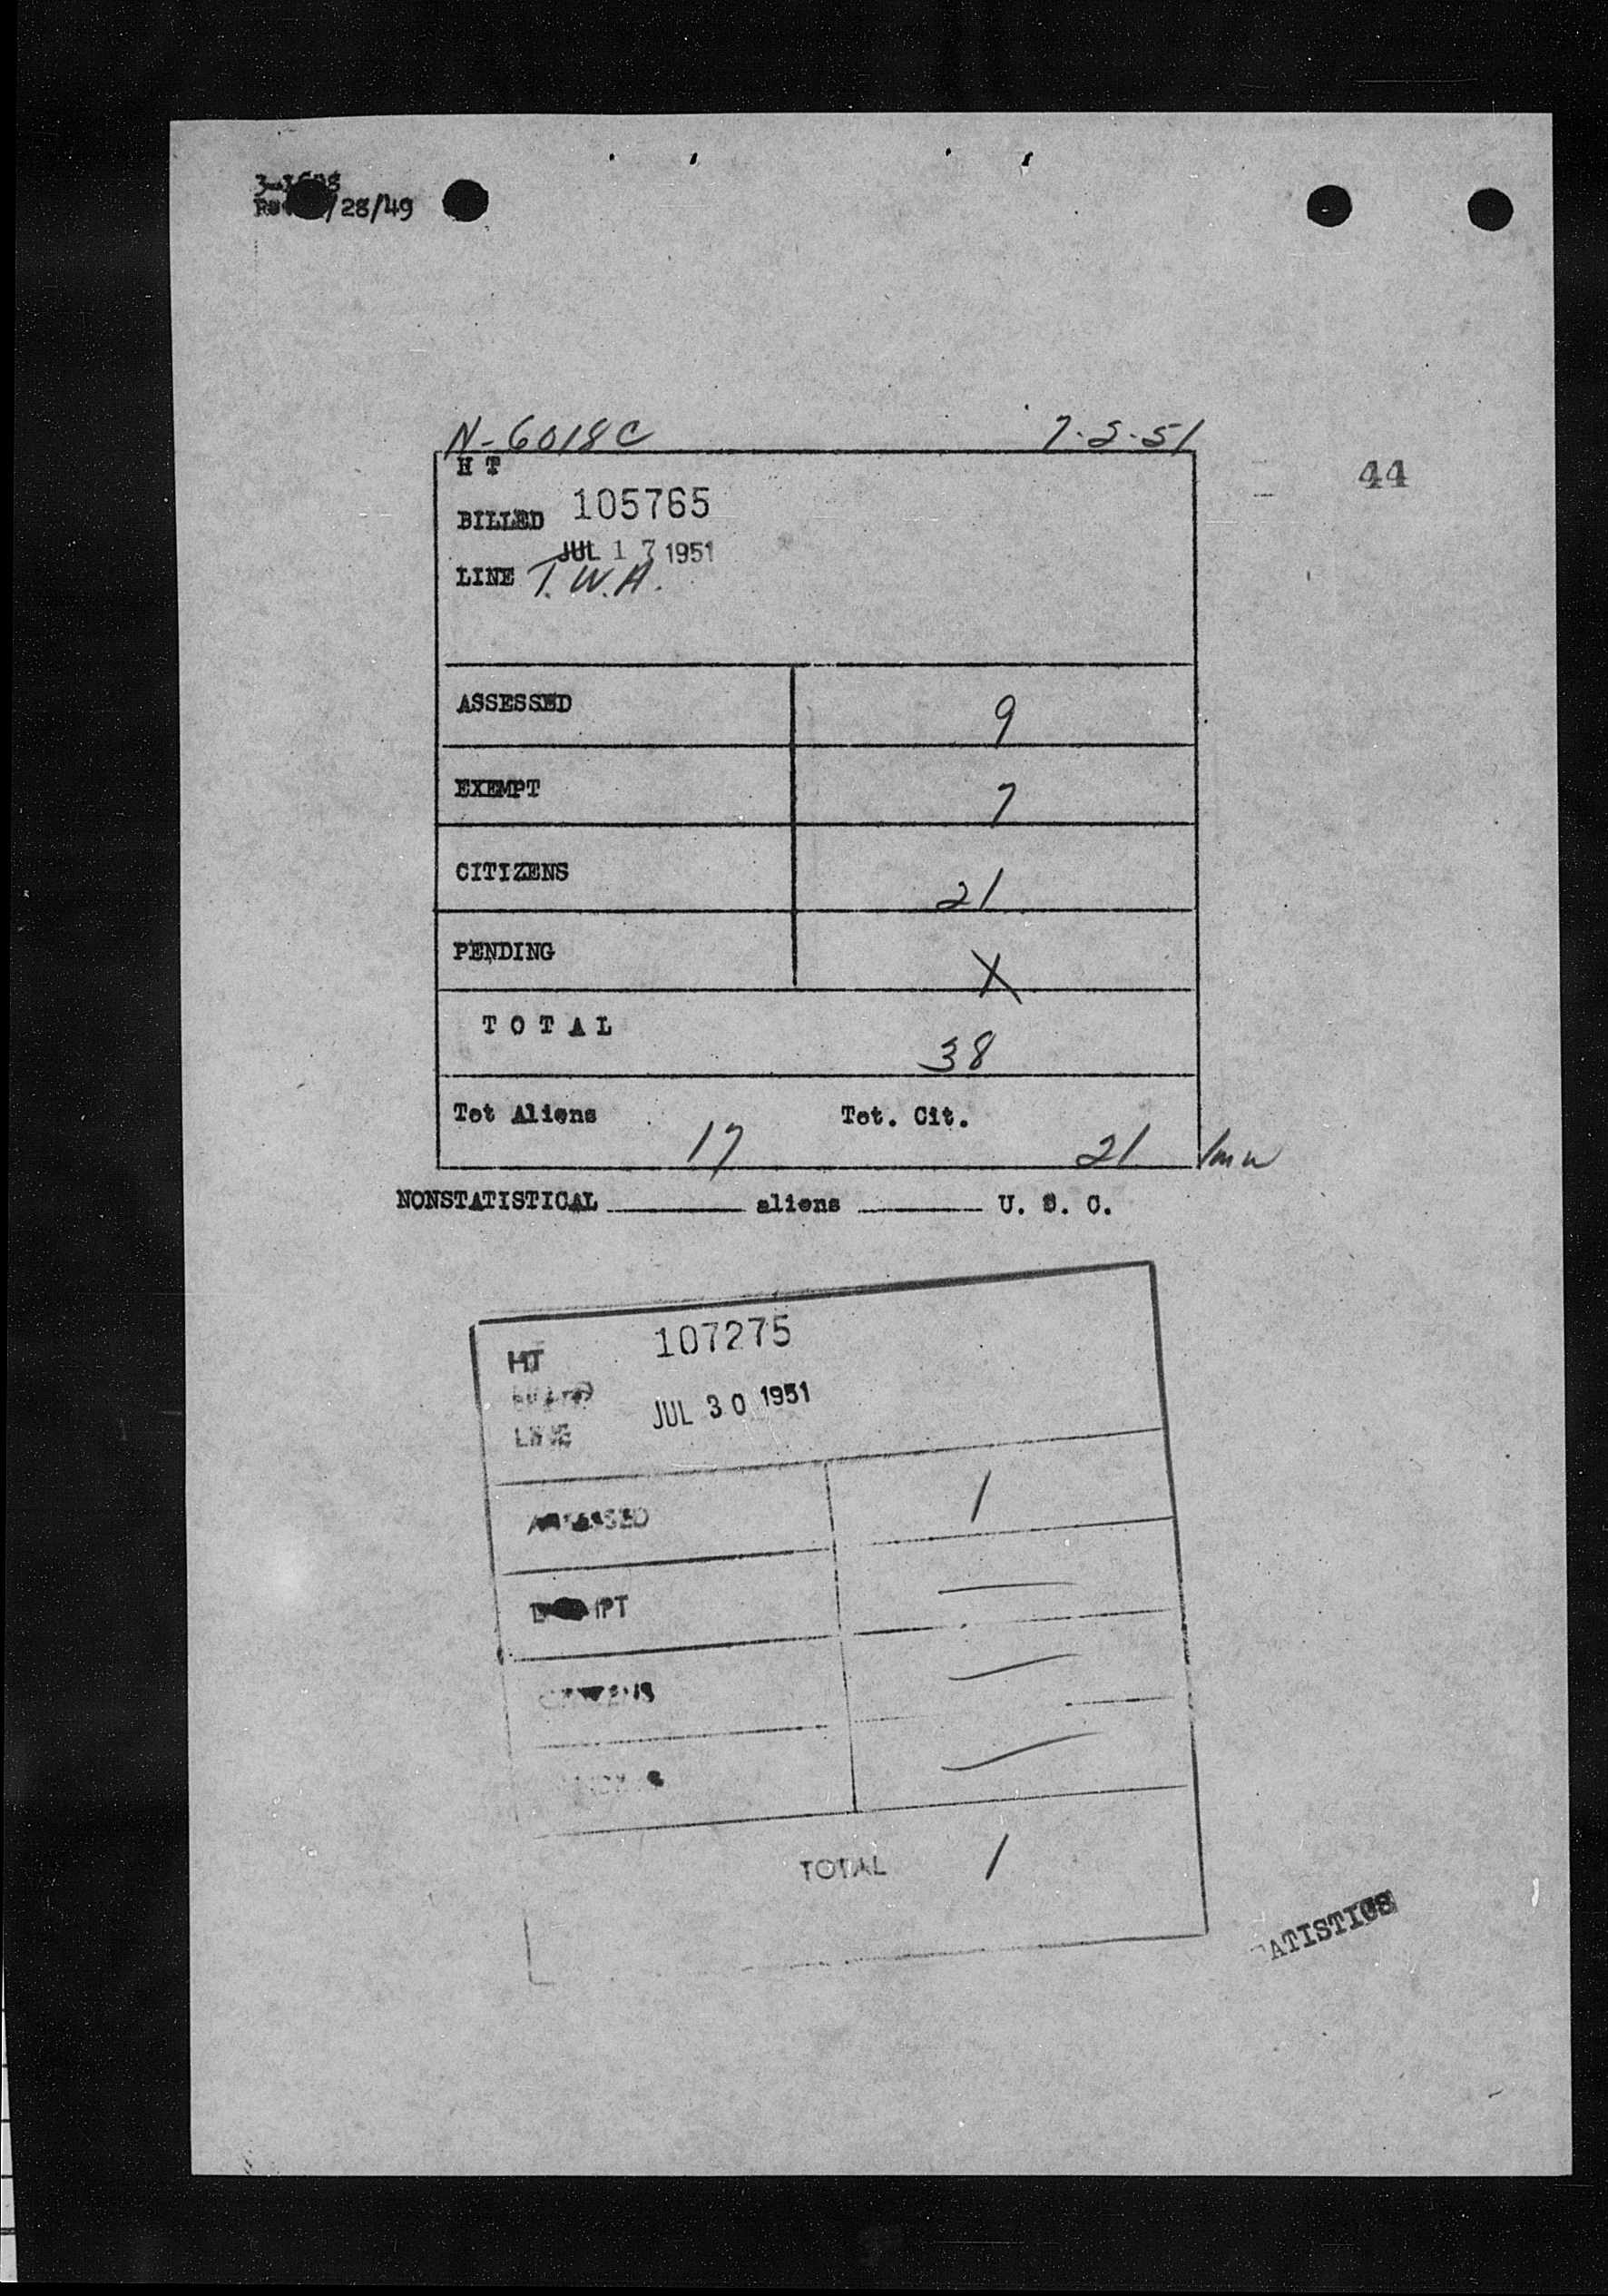 /28/49
N-6018C 7-2-51
H T
44
BILLED 105765
JUL 17 1951
LINE T.W.A.
ASSESSED 9
EXEMPT 7
CITIZENS 21
PENDING X
TOTAL 38
Tot Aliens 17 Tot. Cit. 21
NONSTATISTICAL aliens U. S. C.
HT 107275
LINE JUL 30 1951
ASSESSED 1
EXEMPT
CITIZENS
TOTAL 1
ATISTICS